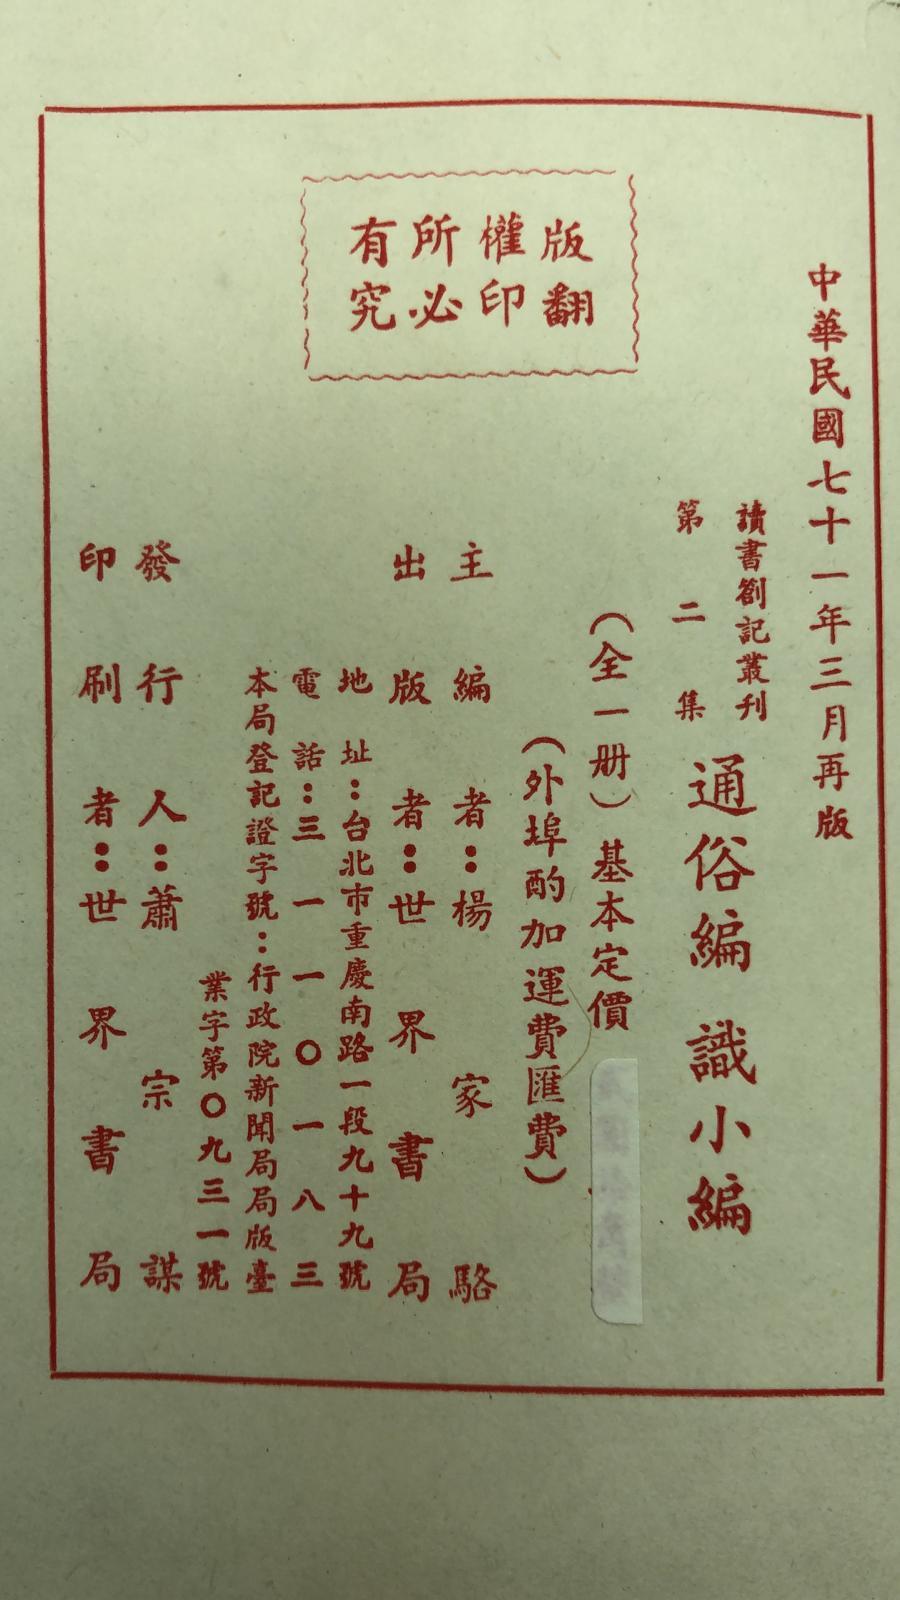 中華民國七十一年三月再版
讀書劄記叢刊
第二集
通俗編 識小編
(全一册)基本定價
(外埠酌加運費匯費)
版權所有
翻印必究
主編者:楊家駱
出版者:世界書局
地址:台北市重慶南路一段九十九號
電話:三一一〇一八三
本局登記證字號:行政院新聞局局版臺
業字第〇九三一號
發行人:蕭宗謀
印刷者:世界書局